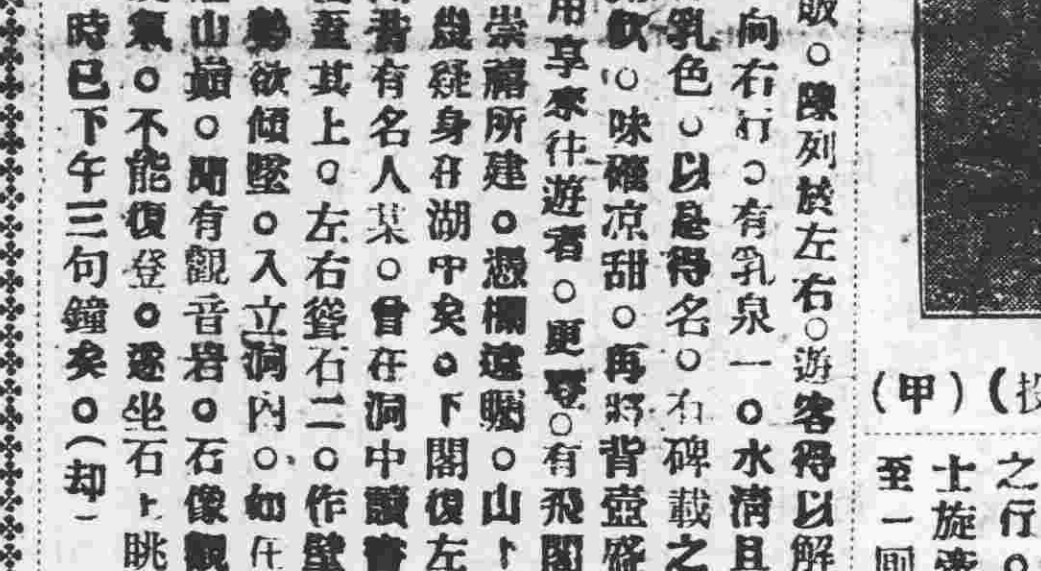 之行。
士旋
至一
(甲)(投
販。陳列於左右。遊客得以解
向右行。有乳泉一。水淸且
乳色。以是得名。右碑載之
飲。味確凉甜。再將背壺盛
用享來往遊者。更登。有飛閣
崇禧所建。憑欄遠矚。山上
幾疑身在湖中矣。下閣復左
昔有名人某。曾在洞中讀書
至其上。左右聳石二。作壁
勢欲傾墜。入立洞內。如在
山巓。聞有觀音岩。石像觀
氣。不能復登。遂坐石上眺
時已下午三句鐘矣。(却)